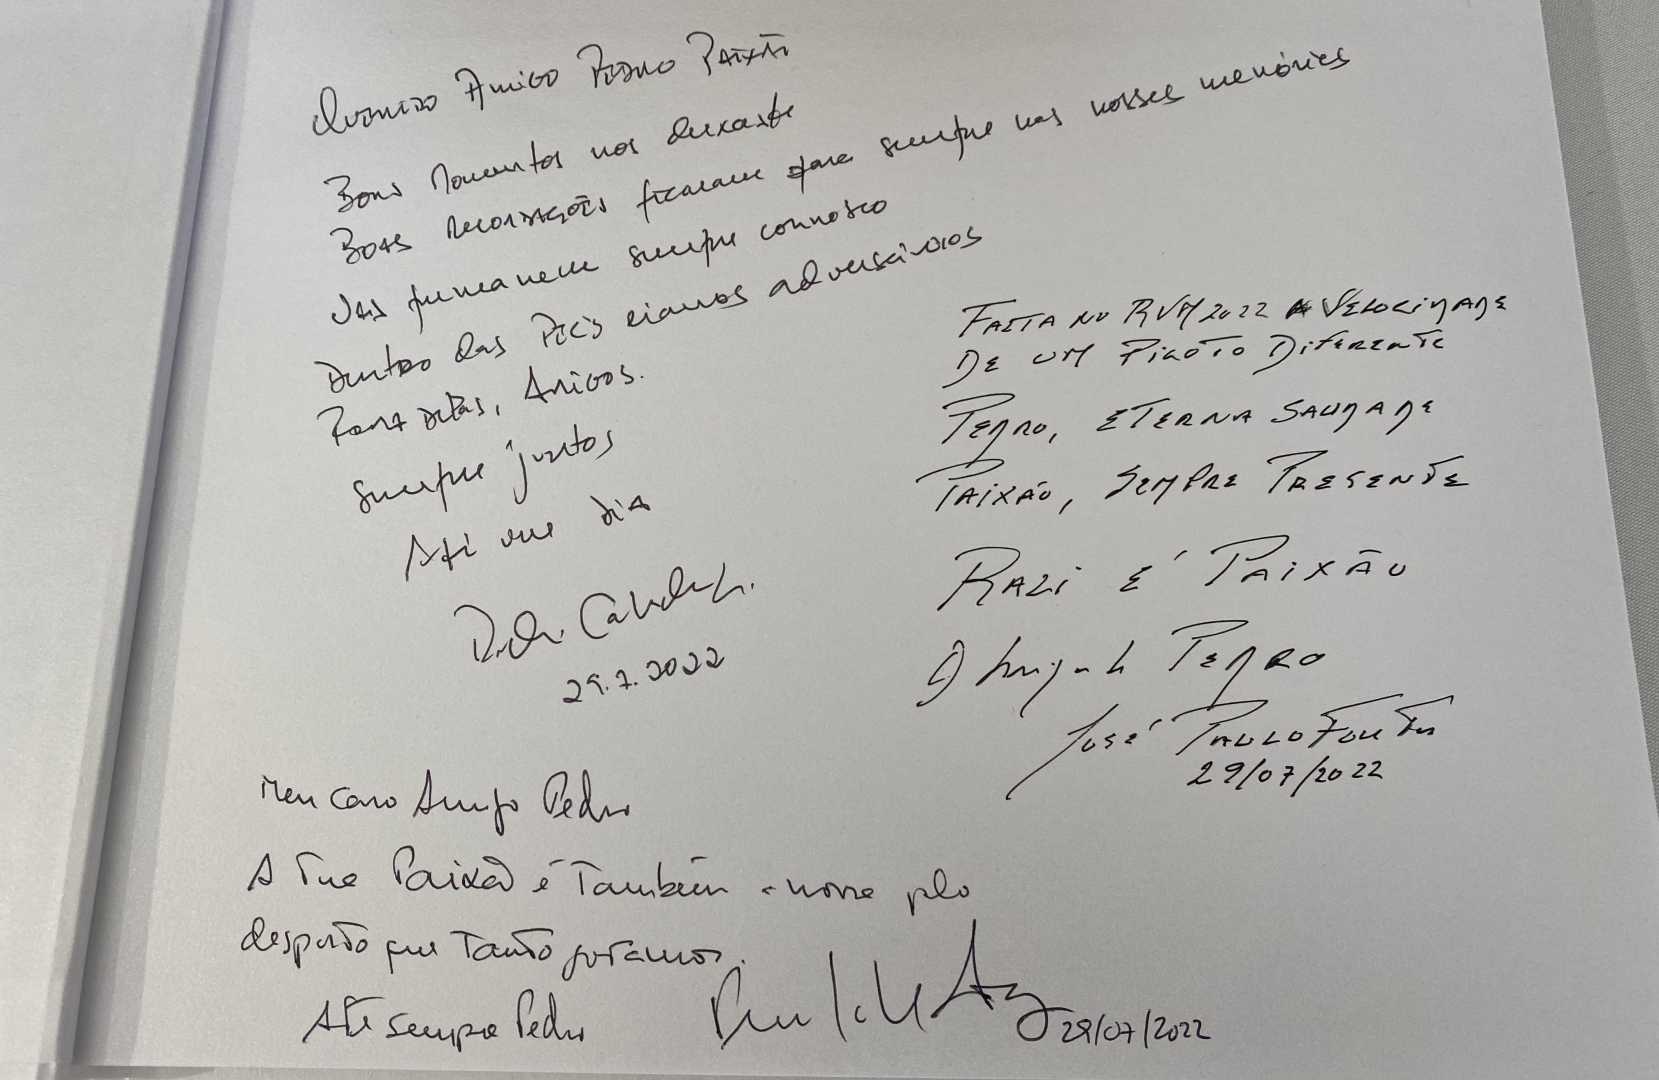 Querido Amigo Pedro Paixão
Bons Momentos nos deixaste
Boas recordações ficaram para sempre nas nossas memórias
Vais permanecer sempre connosco
Dentro das PECs eramos adversários
Fora delas, Amigos.
Sempre juntos
Até um dia
29.7.2022
FALTA NO RVM 2022 A VELOCIDADE
DE UM PILOTO DIFERENTE
PEDRO, ETERNA SAUDADE
PAIXÃO, SEMPRE PRESENTE
RALI É PAIXÃO
Obrigado PEDRO
JOSÉ PAULO FONTES
29/07/2022
Meu Caro Amigo Pedro
A Tua Paixão é Também a nossa pelo
desporto que Tanto gostamos.
Até sempre Pedro
29/07/2022